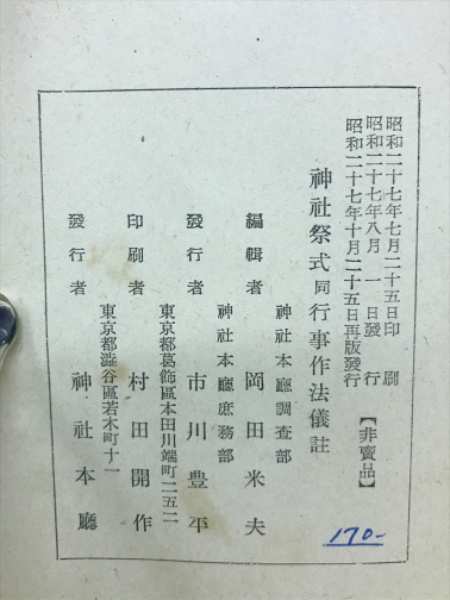 昭和二十七年七月二十五日印刷
昭和二十七年八月一日發行
昭和二十七年十月二十五日再版發行
【非賣品】
神社祭式同行事作法儀註
神社本廳調査部
編輯者 岡田米夫
神社本廳庶務部
發行者 市川豊平
東京都葛飾區本田川端町二五二
印刷者 村田開作
東京都澁谷區若木町十一
發行者 神社本廳
170-